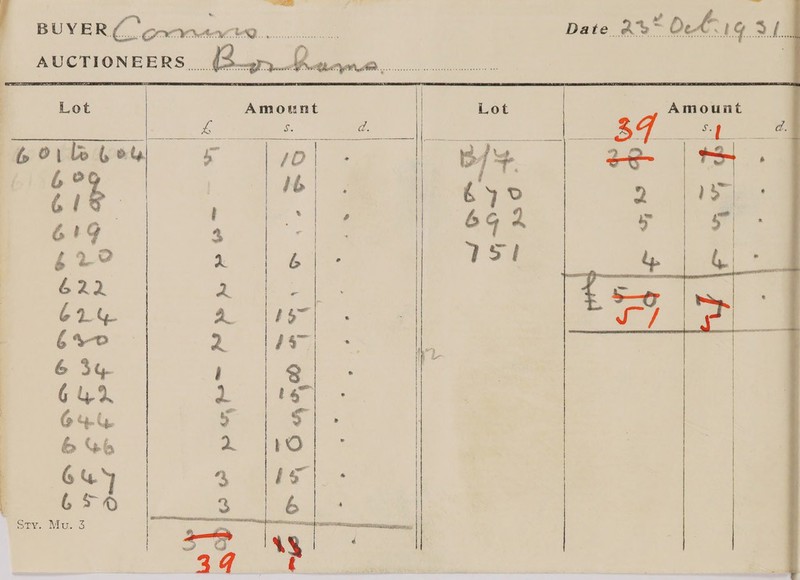 BUYER Comins Date 23rd Oct. 1931
AUCTIONEERS Bonhams.
Lot Amount Lot Amount
£ s. d. 39 s. 1 d.
601 to 604 5 10 . B/F. 38 13 .
609 16 . 670 2 15 .
618 1 - . 692 5 5 .
619 3 - . 751 4 4 .
620 2 6 . £ 50 17 .
622 2 - . 51 5
624 2 15 .
630 2 15 .
634 1 8 .
642 2 15 .
644 5 5 .
646 2 10 .
647 3 15 .
650 3 6 .
STY. MU. 3
38 13 .
39 1